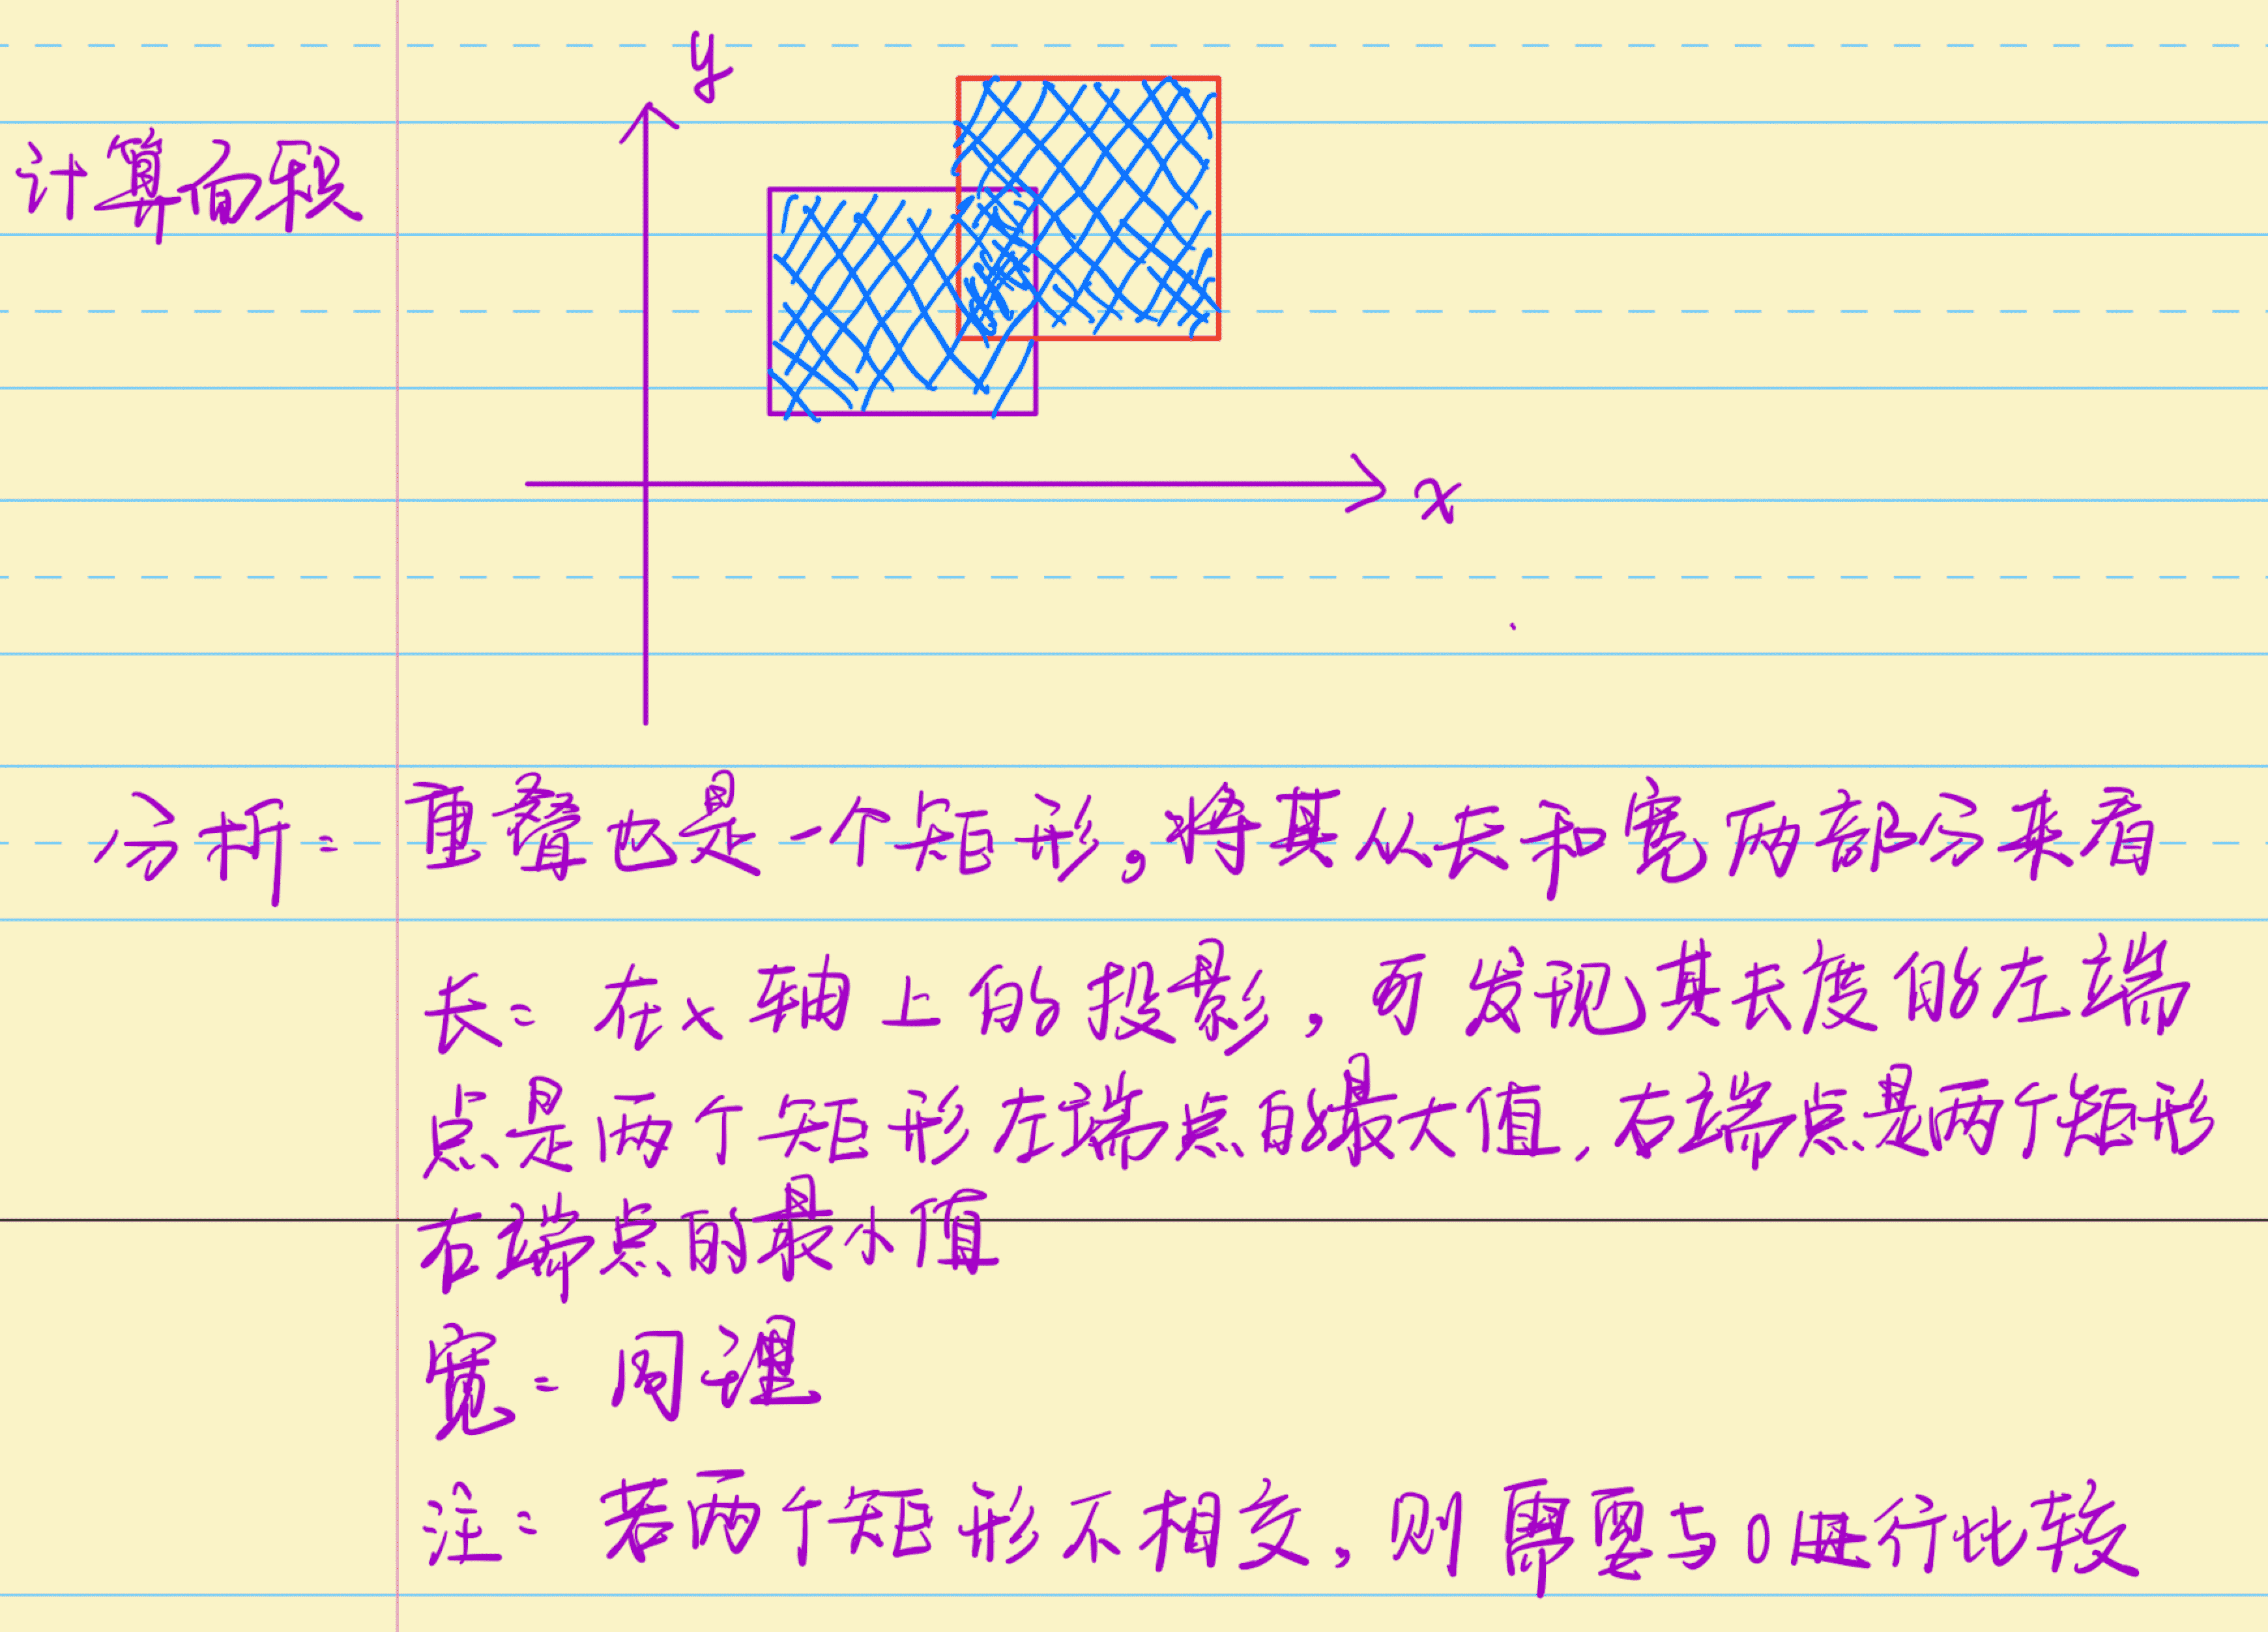 y
计算面积
x
分析：重叠也是一个矩形，将其从长和宽两部分来看
长：在x轴上的投影，可发现其长度的左端
点是两个矩形左端点的最大值，右端点是两个矩形
右端点的最小值
宽：同理
注：若两个矩形不相交，则需要与0进行比较